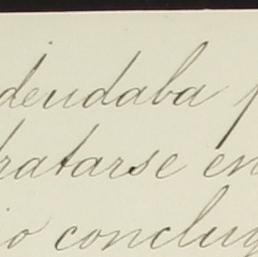 deudaba p
tratarse en
io conclug